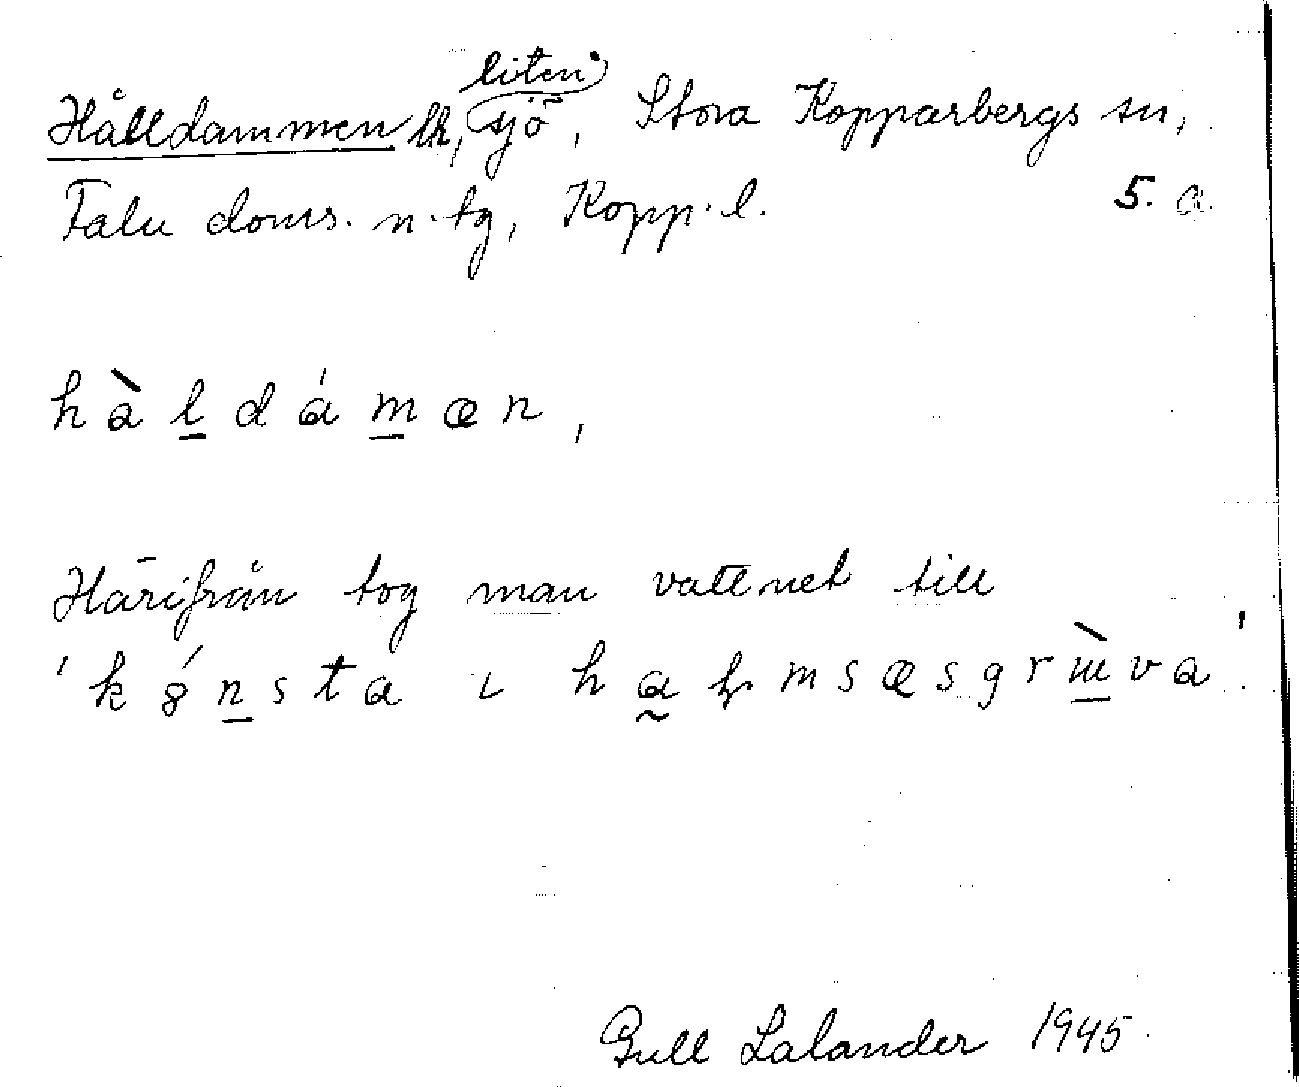 Hålldammen lh, liten sjö, Stora Kopparbergs sn,
Falu doms. n. tg, Kopp. l. 5. a.
hàl̲dám̲œn,
Härifrån tog man vattnet till
'kǿn̲sta ı ha̰ꞕmsœsgrɯ̲̀va'.
Gull Lalander 1945.